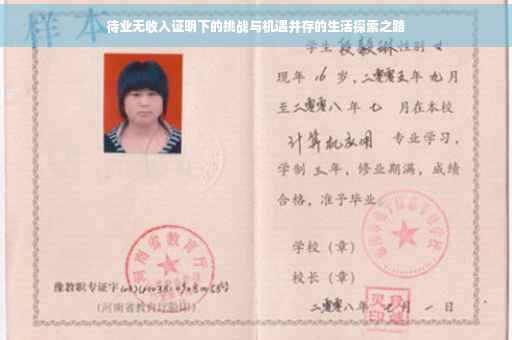 待业无收入证明下的挑战与机遇并存的生活探索之路
样本
学生段毅琳性别女
现年16岁，二零零五年九月
至二零零八年七月在本校
计算机应用 专业学习，
学制三年，修业期满，成绩
合格，准予毕业
学校（章）
校长（章）
二零零八年 月一日
河南省教育厅
豫教职专证字
（河南省教育厅验印）